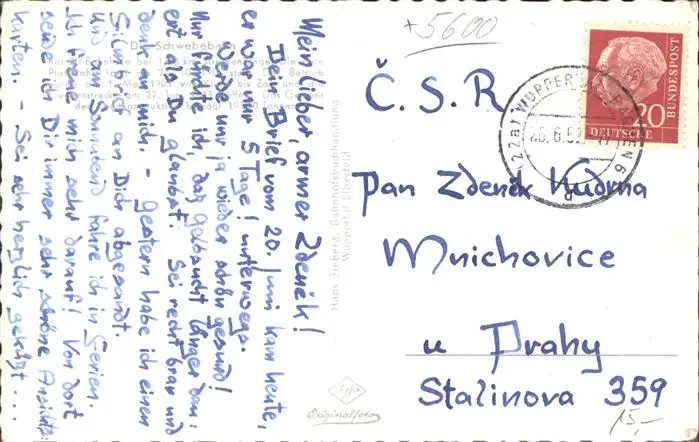 Mein lieber, armer Zdeněk!
Dein Brief vom 20. Juni kam heute,
er war nur 5 Tage! unterwegs.
Werde nur ja wieder schön gesund!
Nur fürchte ich, daß Gelbsucht länger dau-
ert als Du glaubst. Sei recht brav und
denk an mich. - Gestern habe ich einen
Filmbrief an Dich abgesandt.
Und am Sonnabend fahre ich in Ferien.
Ich freue mich sehr darauf! Von dort
sende ich Dir immer sehr schöne Ansichts-
karten. - Sei sehr herzlich gegrüßt...
Die Schwebebahn
Hans Sieberg, Bahnhofsbuchhandlung
Wuppertal-Elberfeld
Agfa
Originalfoto
+5600
DEUTSCHE BUNDESPOST
20
WUPPERTAL
22a
Č.S.R
Pan Zdeněk Kudrna
Mnichovice
u Prahy
Stalinova 359
15,-